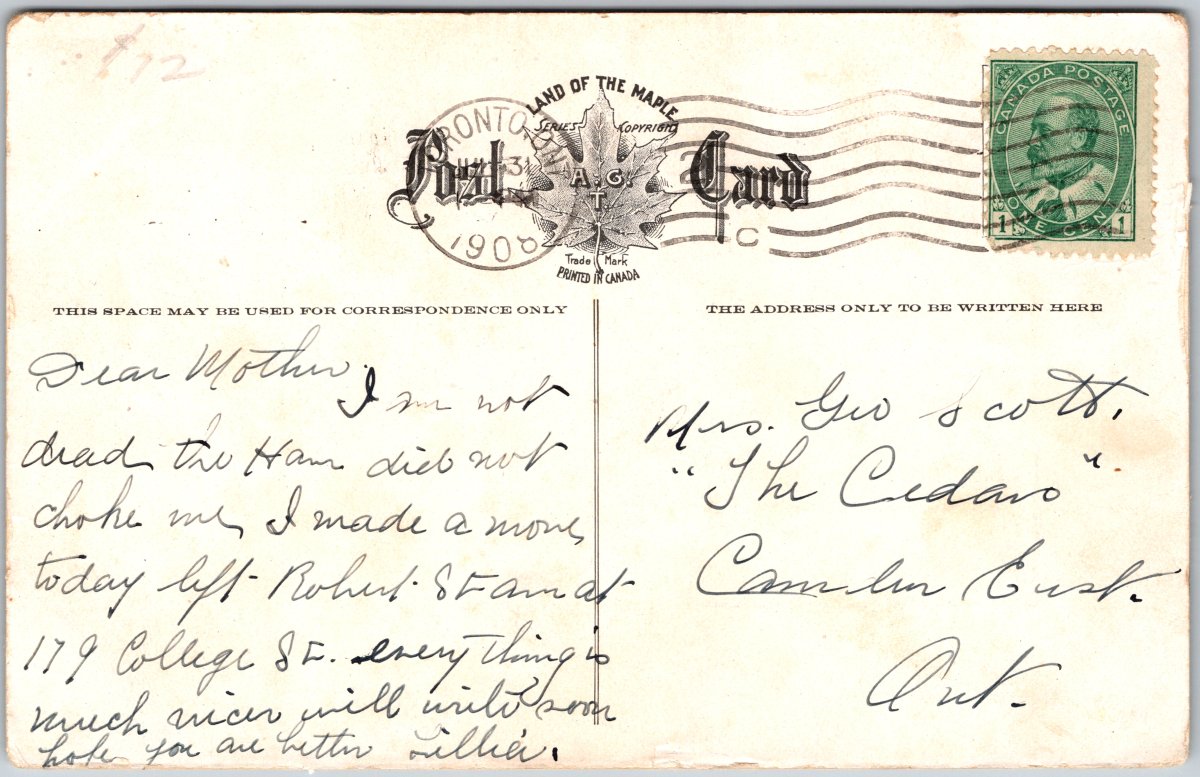 $72
LAND OF THE MAPLE
SERIES COPYRIGHT
Post Card
A.G.
T
Trade Mark
PRINTED IN CANADA
TORONTO
1908
C
CANADA POSTAGE
1 ONE CENT 1
THIS SPACE MAY BE USED FOR CORRESPONDENCE ONLY
THE ADDRESS ONLY TO BE WRITTEN HERE
Dear Mother.
I am not
dead, the Ham did not
choke me, I made a move,
today left Robert St am at
179 College St. everything is
much nicer will write soon
hope you are better Lillie.
Mrs. Geo Scott,
"The Cedars"
Camden East.
Ont.